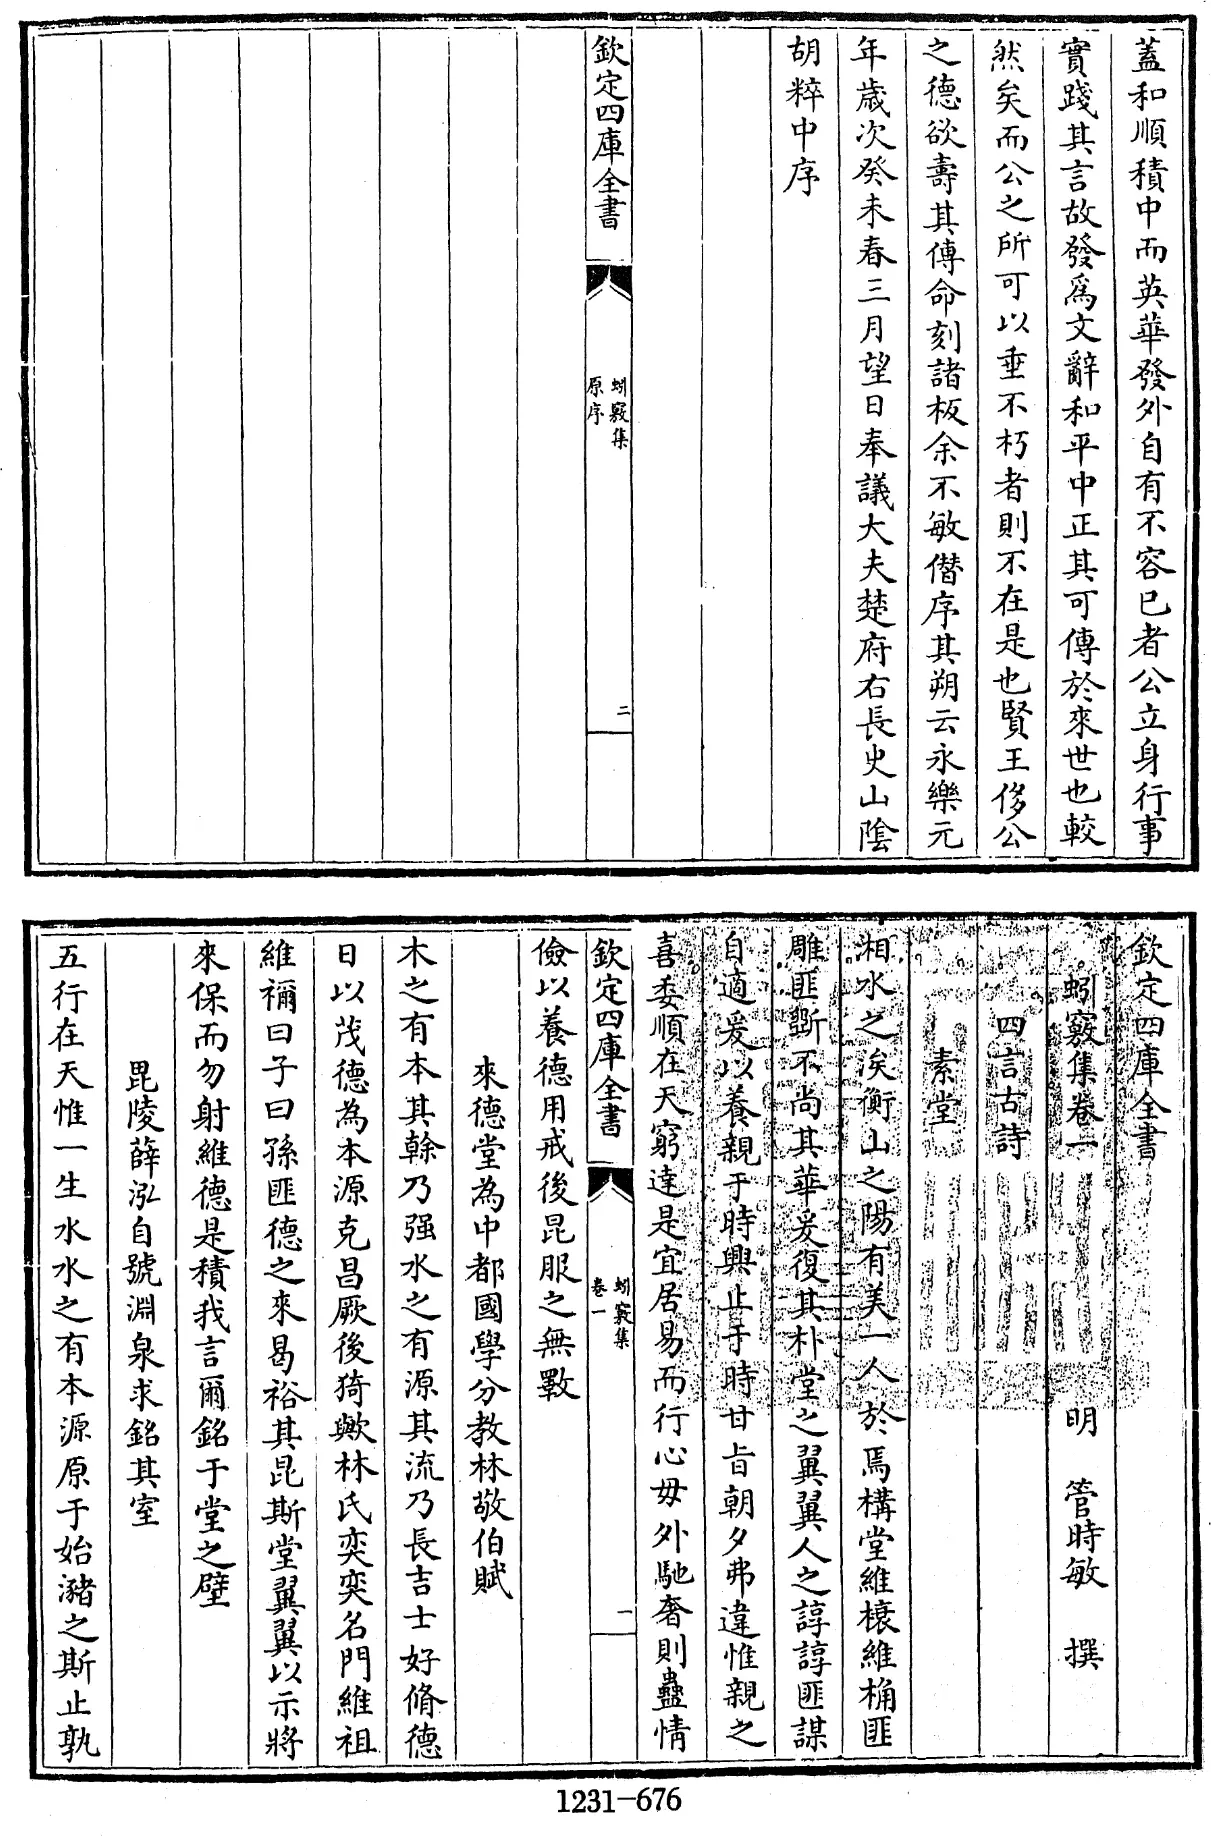 蓋和順積中而英華發外自有不容已者公立身行事
實踐其言故發爲文辭和平中正其可傳於來世也較
然矣而公之所可以垂不朽者則不在是也賢王侈公
之德欲壽其傳命刻諸板余不敏僭序其朔云永樂元
年歲次癸未春三月望日奉議大夫楚府右長史山陰
胡粹中序
欽定四庫全書
蚓竅集
原序
二
欽定四庫全書
蚓竅集卷一
明 管時敏 撰
四言古詩
素堂
湘水之涘衡山之陽有美一人於焉構堂維榱維桷匪
雕匪斲不尚其華爰復其朴堂之翼翼人之諄諄匪謀
自適爰以養親于時興止于時甘旨朝夕弗違惟親之
喜委順在天窮達是宜居易而行心毋外馳奢則蠱情
欽定四庫全書
蚓竅集
卷一
一
儉以養德用戒後昆服之無斁
來德堂為中都國學分教林敬伯賦
木之有本其榦乃强水之有源其流乃長吉士好脩德
日以茂德為本源克昌厥後猗歟林氏奕奕名門維祖
維禰曰子曰孫匪德之來曷裕其昆斯堂翼翼以示將
來保而勿射維德是積我言爾銘于堂之壁
毘陵薛泓自號淵泉求銘其室
五行在天惟一生水水之有本源原于始瀦之斯止孰
1231-676